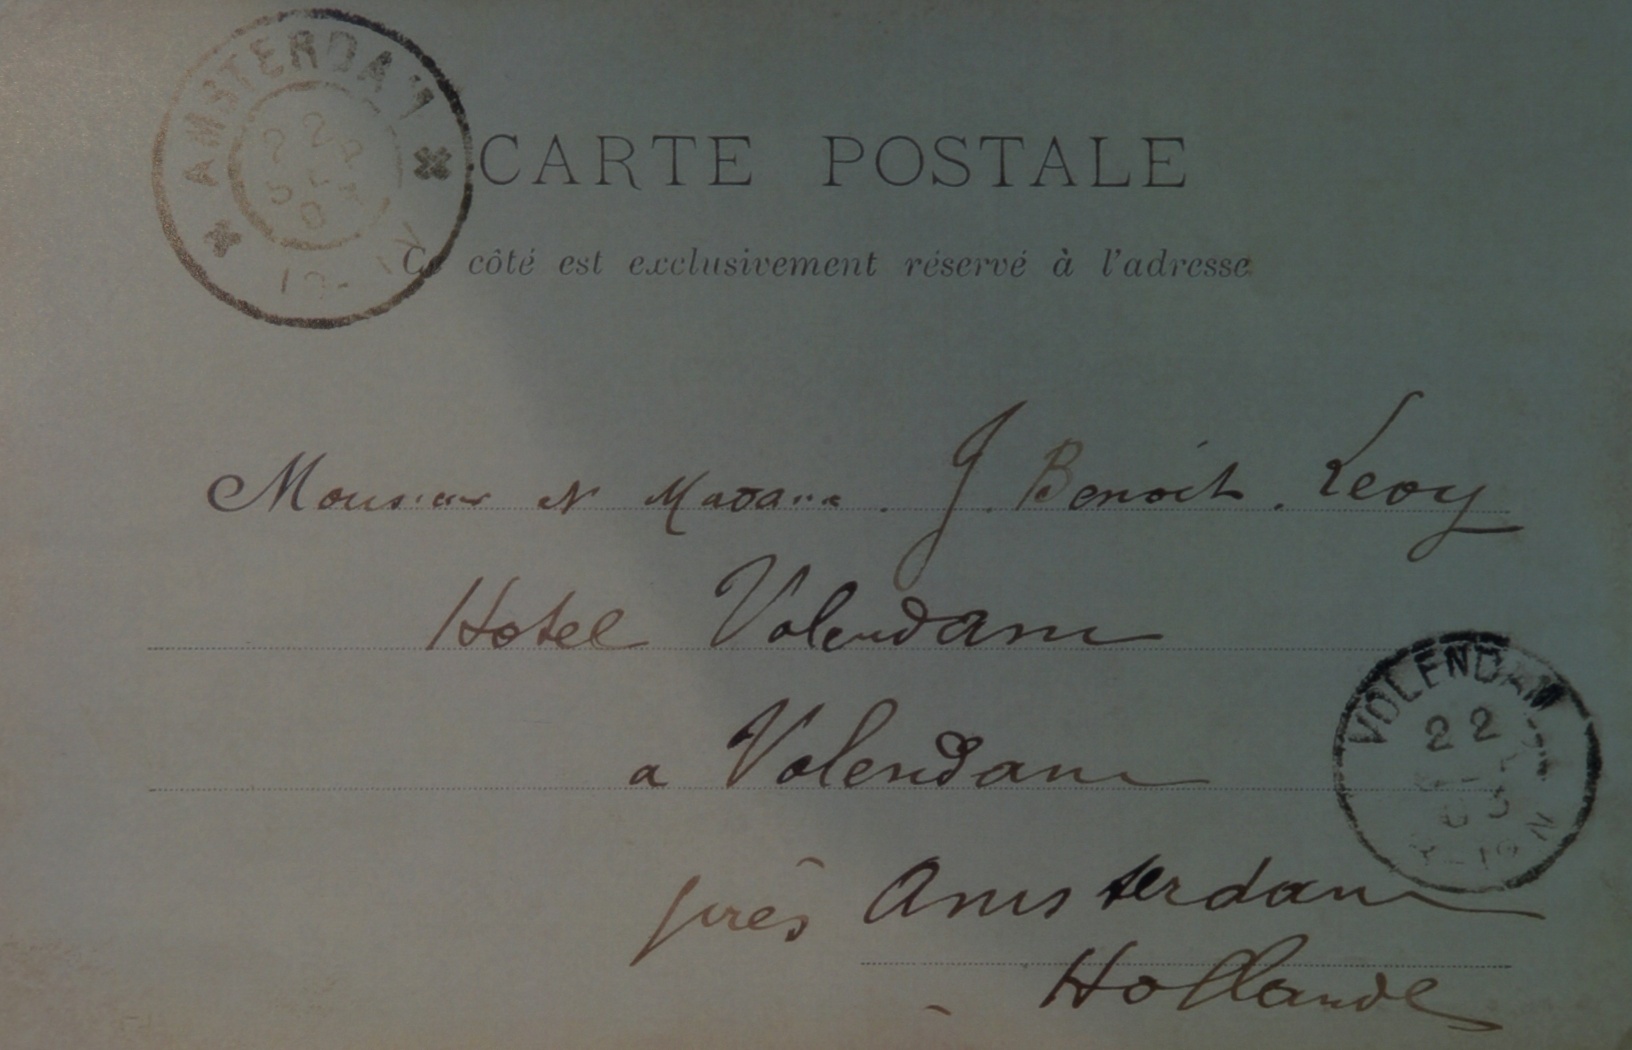 AMSTERDAM
CARTE POSTALE
Ce côté est exclusivement réservé à l'adresse
Monsieur et Madame J. Benoit. Levy
Hotel Volendam
VOLENDAM
22
a Volendam
03
près Amsterdam
Hollande